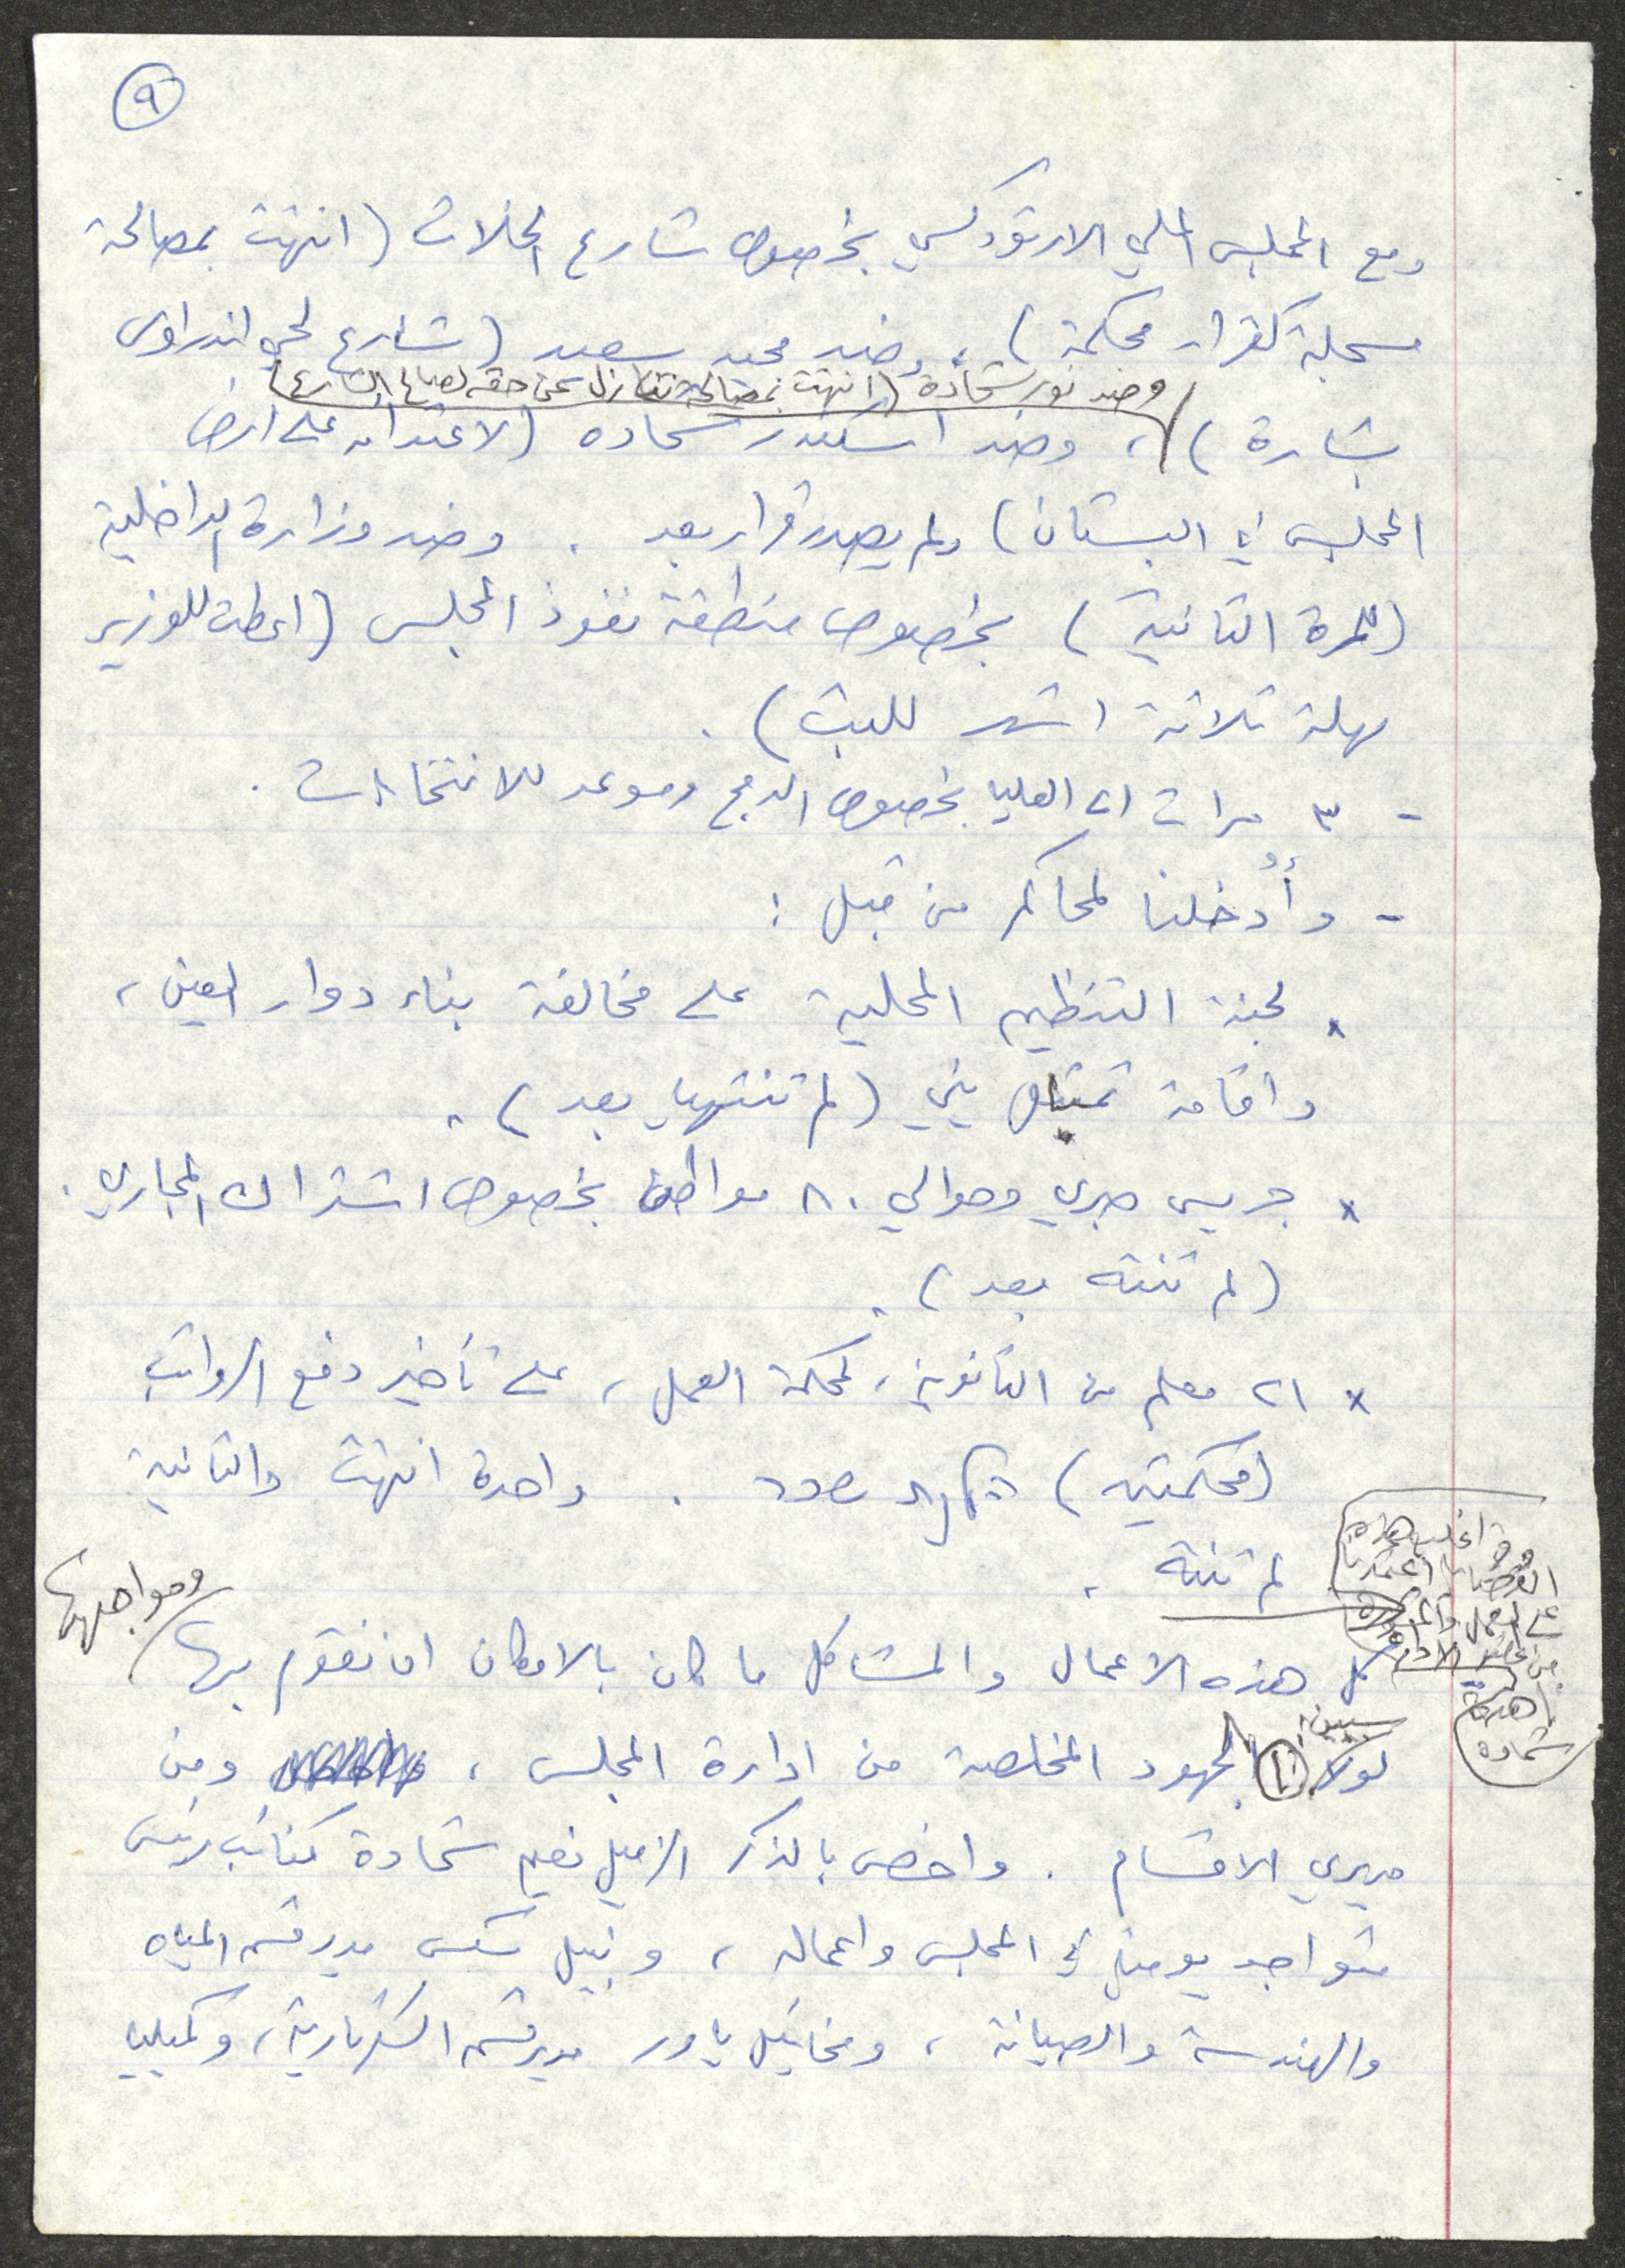 ٩
ومع المجلس الملي الارثوذكسي بخصوص شارع الخلات (انتهت بمصالحة
مسجلة كقرار محكمة)، وضد محمد سعيد (شارع لحي اندراوس
وضد نور شحادة (انتهت بمصالحة تنازل عن حقه لصالح الشارع)
بشارة)، وضد اسكندر شحاده (لاعتدائه على ارض
المجلس في البستان) ولم يصدر قرار بعد. وضد وزارة الداخلية
(للمرة الثانية) بخصوص منطقة نفوذ المجلس (اعطت للوزير
مهلة ثلاثة اشهر للبت).
- ٣ مرات الى العليا بخصوص الدمج وموعد للانتخابات.
- وأُدخلنا لمحاكم من قبل:
x لجنة التنظيم المحلية على مخالفة بناء دوار العين،
واقامة تمثال يني (لم تنتهِ بعد).
x جريس جبري وحوالي ٨٠ مواطن بخصوص اشتراك المجاري.
(لم تنته بعد).
x ٢١ معلم من الثانوية، لمحكمة العمل، على تأخير دفع الرواتب
(محكمتين). واحدة انتهت والثانية
لم تنته.
وفي اغلب هذه
القضايا اعتمدنا
على العمل
من
شحادة
كل هذه الاعمال والمشاكل ما كان بالامكان ان نقوم بها ومواجهتها
لولا الجهود المخلصة من ادارة المجلس، ومن
مديري الاقسام. واخص بالذكر الزميل نعيم شحادة كنائب رئيس
متواجد يوميا في المجلس واعماله، ونبيل سكس مدير قسم المياه
والهندسة والصيانة، ومخائيل ياور مدير قسم السكرتارية، وكميليا